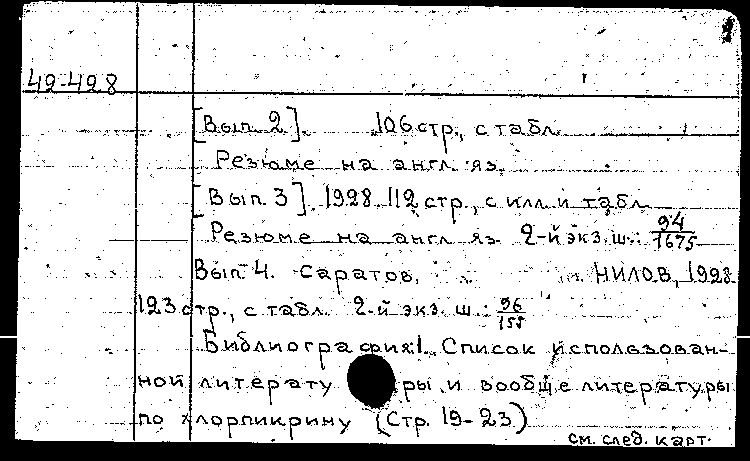 49-498
[Вып. 2]. 106 стр., с табл.
Резюме на англ. яз.
[Вып. 3]. 1928. 112 стр., с илл. и табл.
Резюме на англ. яз. 2-й экз. ш.: 94/1675
Вып. 4. Саратов, НИЛОВ, 1928.
123 стр., с табл. 2-й экз. ш.: 96/155
Библиография: 1. Список использован-
ной литературы и вообще литературы
по хлорпикрину (Стр. 19-23)
см. след. карт.